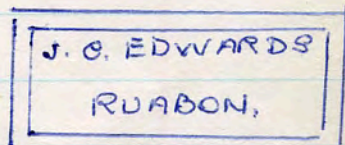 J. C. EDWARDS
RUABON.